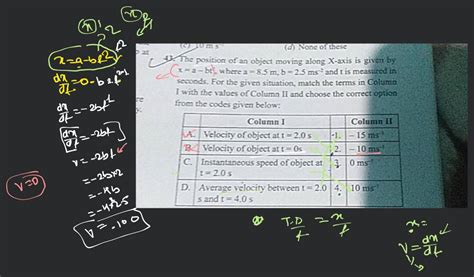 (c) 10 m s⁻¹ (d) None of these
43. The position of an object moving along X-axis is given by
x = a – bt², where a = 8.5 m, b = 2.5 ms⁻² and t is measured in
seconds. For the given situation, match the terms in Column
I with the values of Column II and choose the correct option
from the codes given below:
Column I Column II
A. Velocity of object at t = 2.0 s 1. – 15 ms⁻¹
B. Velocity of object at t = 0s 2. – 10 ms⁻¹
C. Instantaneous speed of object at 3. 0 ms⁻¹
t = 2.0 s
D. Average velocity between t = 2.0 4. 10 ms⁻¹
s and t = 4.0 s
x = a - bt²
dx/dt = 0 - b
dx/dt = -2bt
dx/dt = -2bt
v = -2bt
= -2b×2
= -4b
V = -10.0
V=0
T.D/t = x/t
x =
V = dx/dt